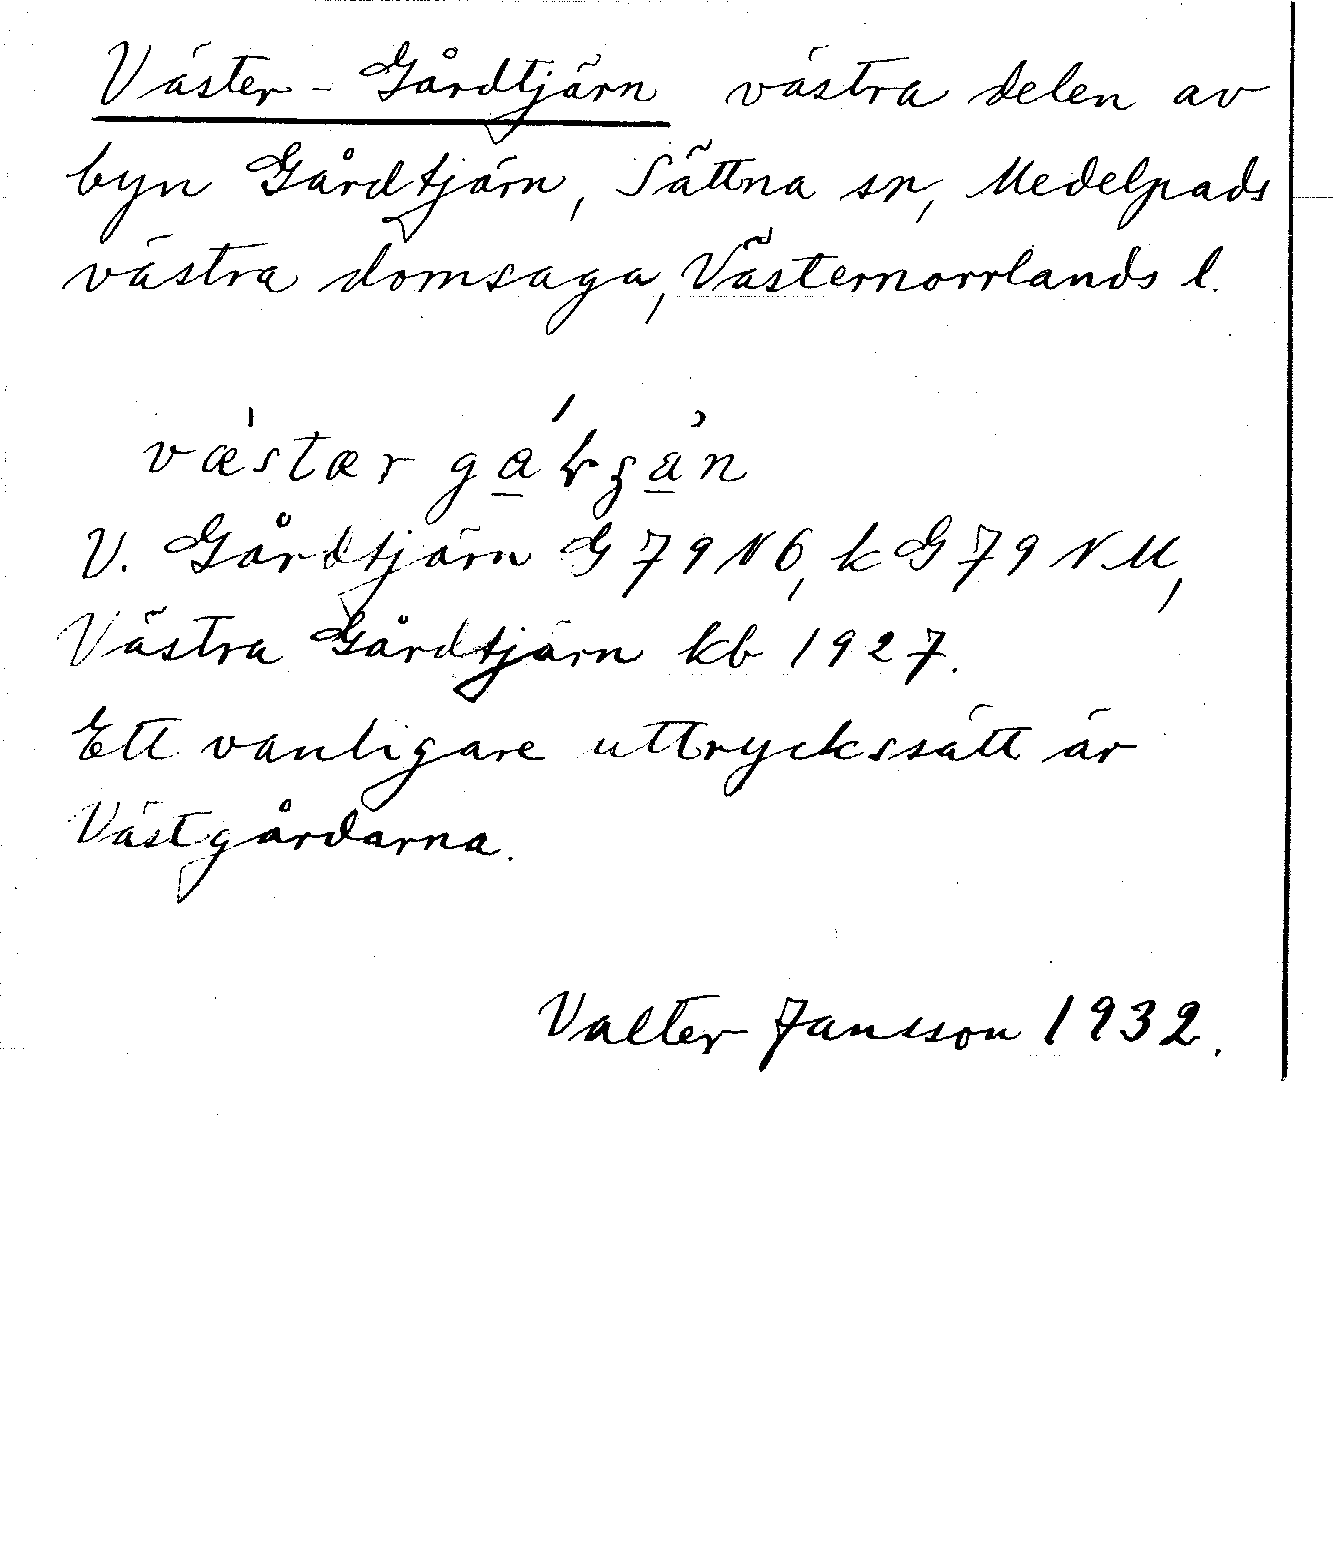 Väster-Gårdtjärn västra delen av
byn Gårdtjärn, Sättna sn, Medelpads
västra domsaga, Västernorrlands l.
væstær
V. Gårdtjärn G 79 NÖ, k G 79 NM,
Västra Gårdtjärn kb 1927.
Ett vanligare uttryckssätt är
Västgårdarna.
Valter Jansson 1932.